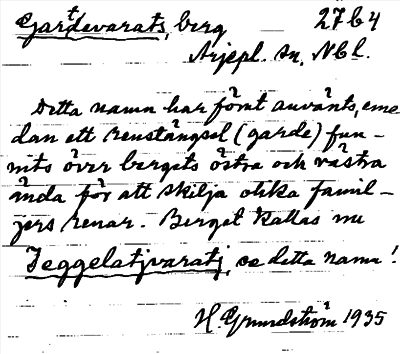 Garttevarats, berg 27b4
Arjepl. sn, Nbl.
Detta namn har förut använts, eme
dan ett renstängsel (garde) fun-
nits över bergets östra och västra
ända för att skilja olika famil-
jers renar. Berget kallas nu
Jeggelatjvaratj, se detta namn!
H. Grundström 1935